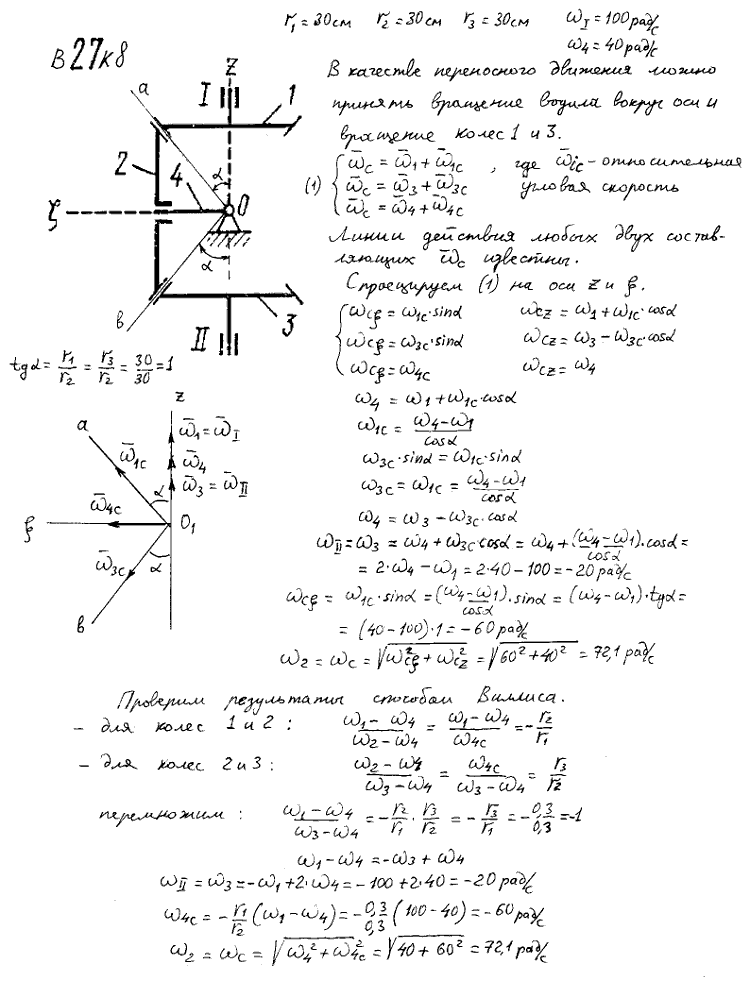 r₁ = 30см r₂ = 30см r₃ = 30см ω_I = 100 рад/с
ω₄ = 40 рад/с
В 27 к 8
a
z
I
1
2
4
α
ξ
O
α
в
II
3
В качестве переносного движения можно
принять вращение водила вокруг оси и
вращение колес 1 и 3.
(1) { ω̄_C = ω̄₁ + ω̄₁C , где ω̄_iC – относительная
ω̄_C = ω̄₃ + ω̄₃C угловая скорость
ω̄_C = ω̄₄ + ω̄₄C
Линии действия любых двух состав-
ляющих ω̄_C известны.
Спроецируем (1) на оси z и ξ.
{ ω_Cξ = ω₁C·sinα ω_Cz = ω₁ + ω₁C·cosα
ω_Cξ = ω₃C·sinα ω_Cz = ω₃ – ω₃C·cosα
ω_Cξ = ω₄C ω_Cz = ω₄
tgα = r₁/r₂ = r₃/r₂ = 30/30 = 1
z
a
ω̄₁ = ω̄_I
ω̄₁C
ω̄₄
ω̄₃ = ω̄_II
α
ω̄₄C
ξ
O₁
ω̄₃C
α
в
ω₄ = ω₁ + ω₁C·cosα
ω₁C = (ω₄ – ω₁)/cosα
ω₃C·sinα = ω₁C·sinα
ω₃C = ω₁C = (ω₄ – ω₁)/cosα
ω₄ = ω₃ – ω₃C·cosα
ω_II = ω₃ = ω₄ + ω₃C·cosα = ω₄ + (ω₄ – ω₁)/cosα · cosα =
= 2·ω₄ – ω₁ = 2·40 – 100 = –20 рад/с
ω_Cξ = ω₁C·sinα = (ω₄ – ω₁)/cosα · sinα = (ω₄ – ω₁)·tgα =
= (40 – 100)·1 = –60 рад/с
ω₂ = ω_C = √(ω²_Cξ + ω²_Cz) = √(60² + 40²) = 72,1 рад/с
Проверим результаты способом Виллиса.
– для колес 1 и 2 : (ω₁ – ω₄)/(ω₂ – ω₄) = (ω₁ – ω₄)/ω₄C = – r₂/r₁
– для колес 2 и 3 : (ω₂ – ω₄)/(ω₃ – ω₄) = ω₄C/(ω₃ – ω₄) = r₃/r₂
перемножим : (ω₁ – ω₄)/(ω₃ – ω₄) = – r₂/r₁ · r₃/r₂ = – r₃/r₁ = – 0,3/0,3 = –1
ω₁ – ω₄ = –ω₃ + ω₄
ω_II = ω₃ = –ω₁ + 2·ω₄ = –100 + 2·40 = –20 рад/с
ω₄C = – r₁/r₂ (ω₁ – ω₄) = – 0,3/0,3 (100 – 40) = –60 рад/с
ω₂ = ω_C = √(ω₄² + ω₄C²) = √(40 + 60²) = 72,1 рад/с